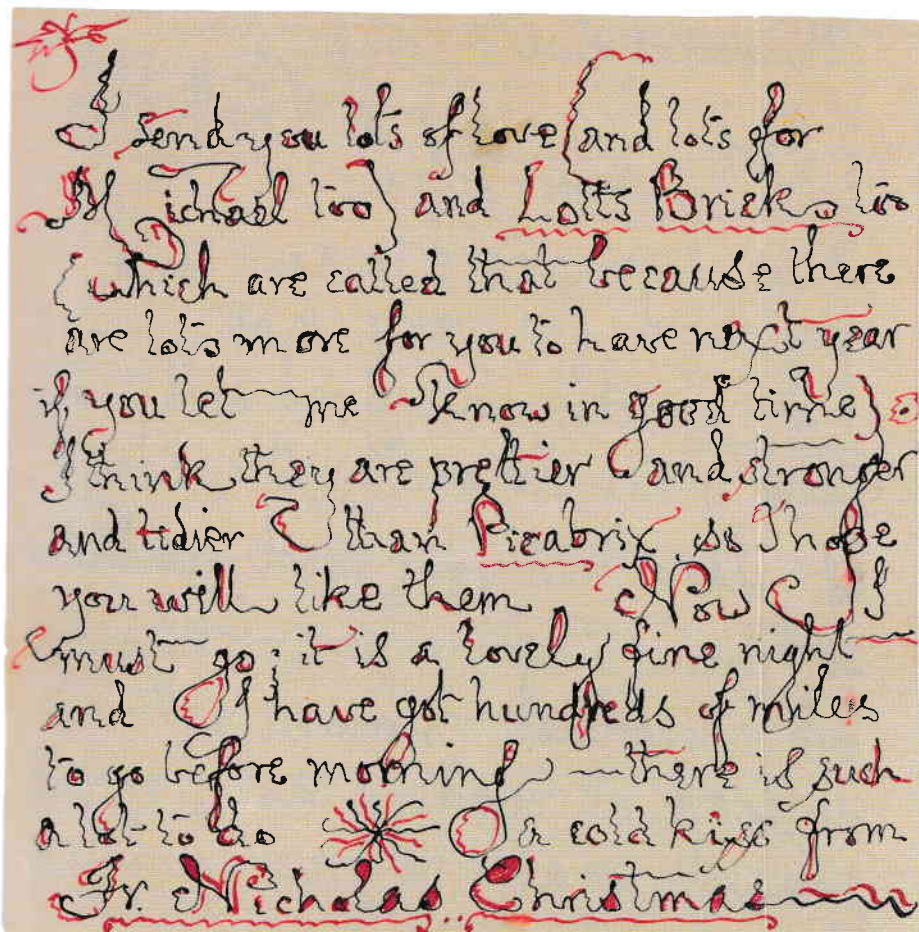 I send you lots of love (and lots for
Michael too) and Lotts Bricks too
(which are called that because there
are lots more for you to have next year
if you let me know in good time).
I think they are prettier and stronger
and tidier than Picabrix. So I hope
you will like them. Now I
must go; it is a lovely fine night
and I have got hundreds of miles
to go before morning — there is such
a lot to do. A cold kiss from
Fr. Nicholas Christmas